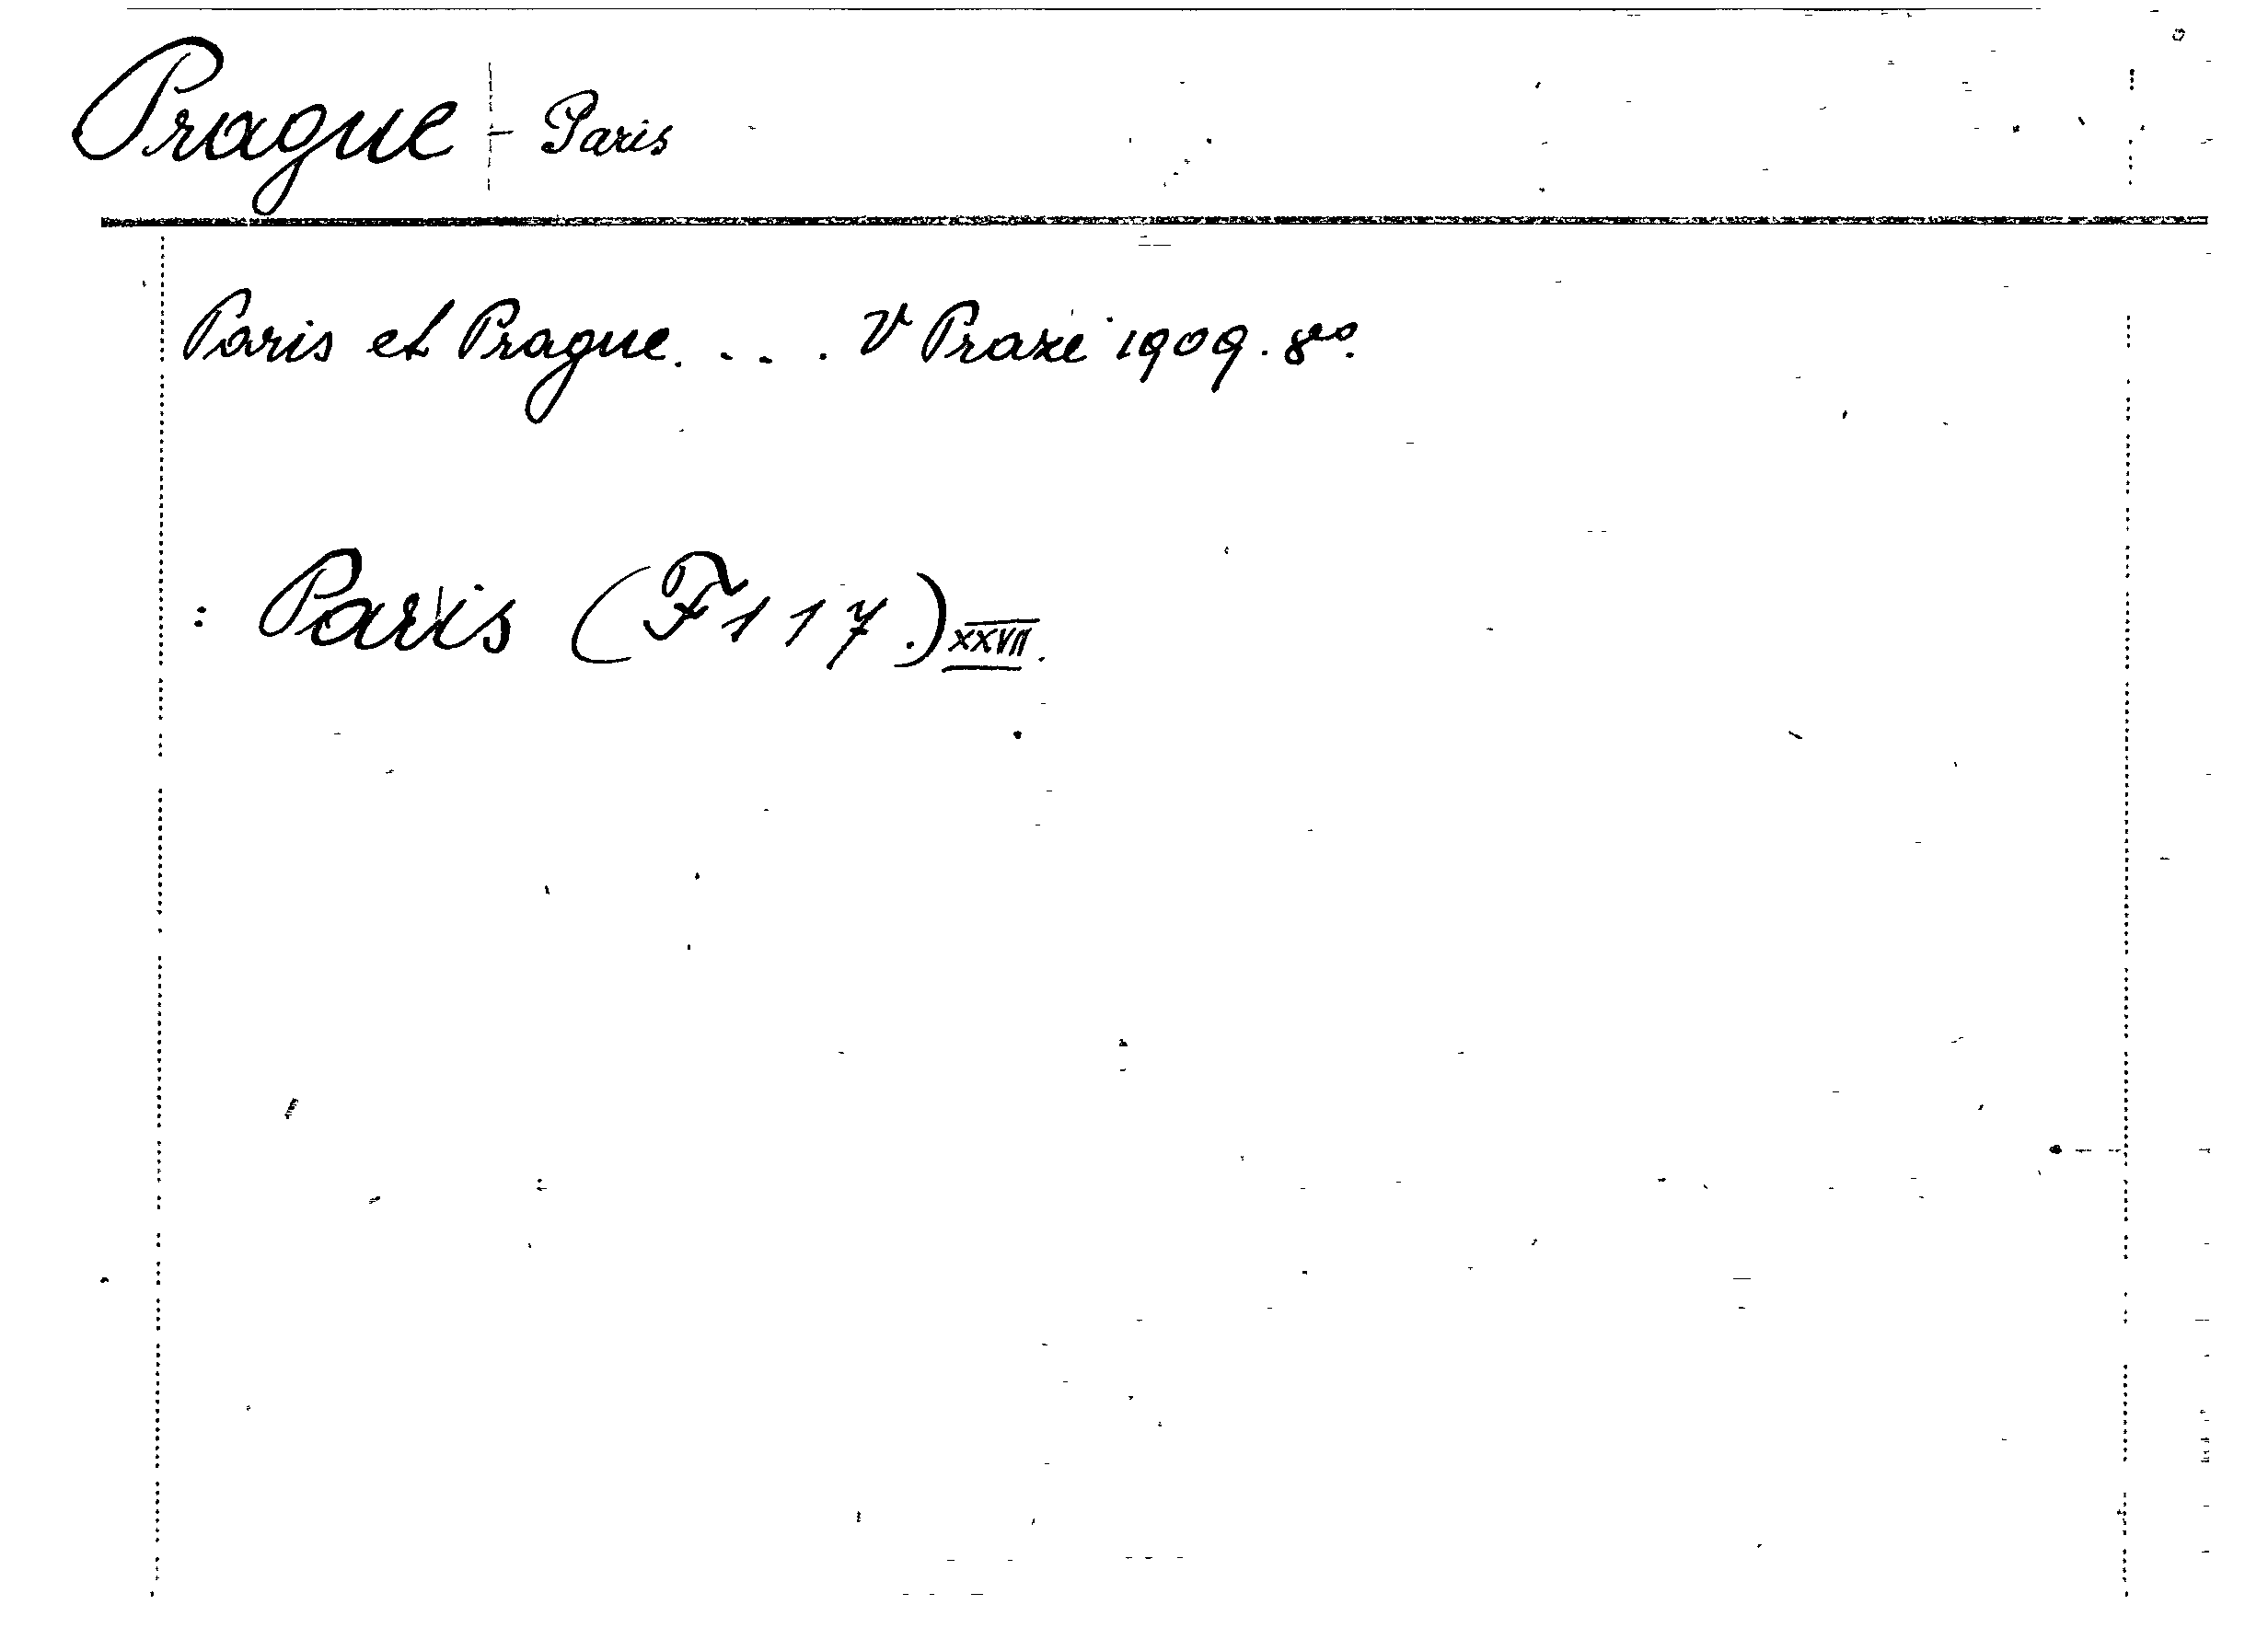 Prague - Paris
Paris et Prague. . . . V Praze 1909. 8vo.
: Paris (F 117.) XXVII.